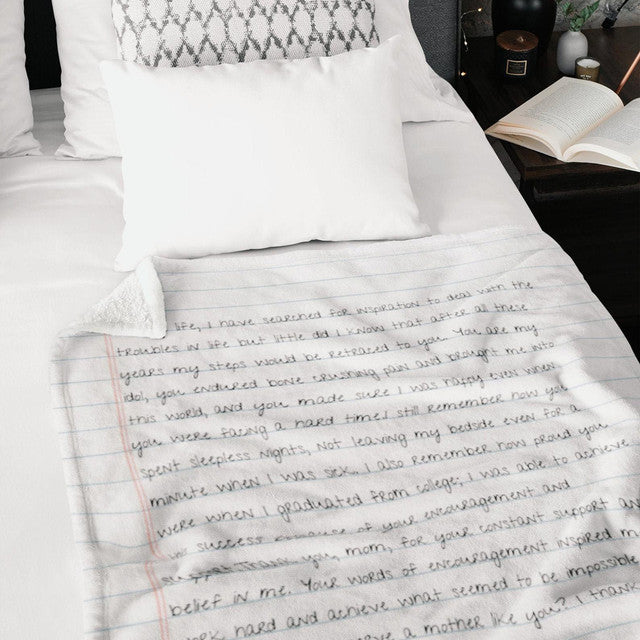 life, I have searched for inspiration to deal with the
troubles in life but little did I know that after all these
years my steps would be retraced to you. You are my
idol, you endured bone crushing pain and brought me into
this world, and you made sure I was happy even when
you were facing a hard time! I still remember how you
spent sleepless nights, not leaving my bedside even for a
minute when I was sick. I also remember how proud you
were when I graduated from college; I was able to achieve
success because of your encouragement and
you, mom, for your constant support and
belief in me. Your words of encouragement inspired m
work hard and achieve what seemed to be impossible
have a mother like you? I thank